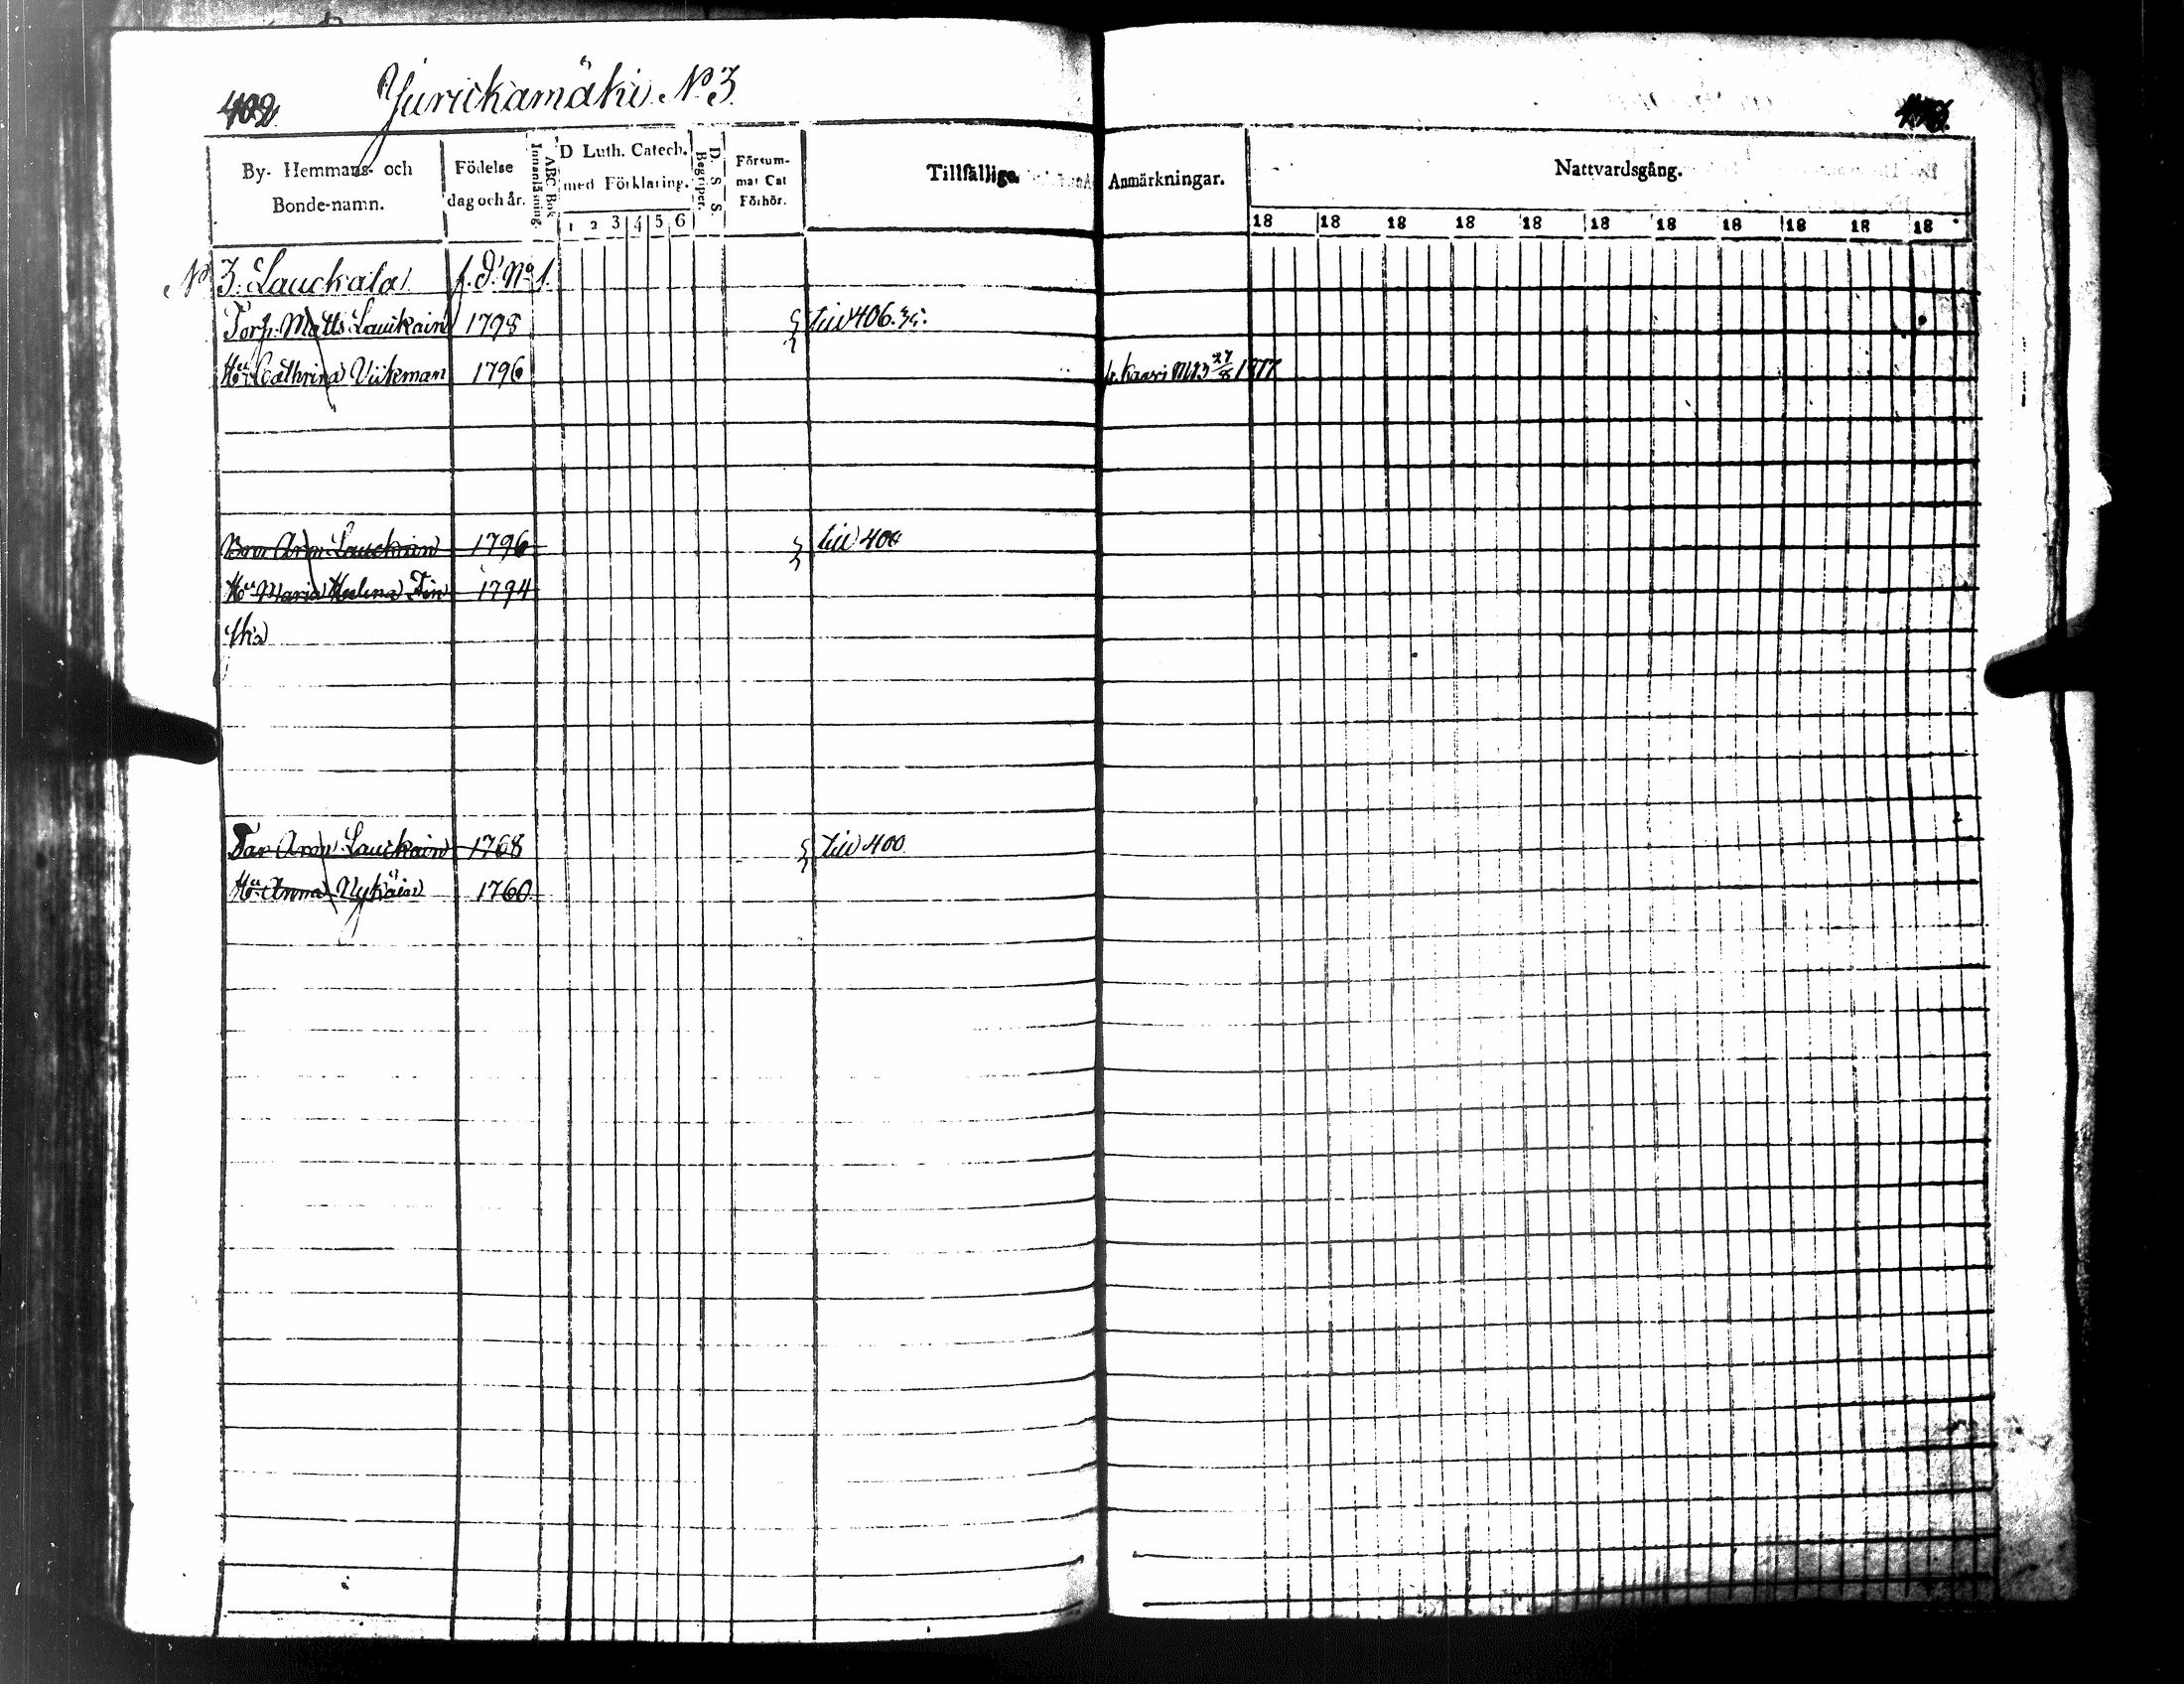 402 Jurickamäki No 3.
By- Hemmans- och Bonde-namn.
Födelse dag och år.
ABC Bok Innanläsning.
D Luth. Catech. med Förklaring.
1 2 3 4 5 6
D. S. S. Begriper.
Försummat Cat Förhör.
Tillfällige
Anmärkningar.
Nattvardsgång.
18 18 18 18 18 18 18 18 18 18 18
No 3. Lauckala f. d. No 1.
Torp. Matts Lauikain 1798 till 406.
Hu Cathrina Viikman 1796 1877
Arm Lauckain 1796 till 400
Hu Maria Helena Fin 1794
ska
Far Aron Lauckain 1768 till 400
Hu Anna Nykäin 1760